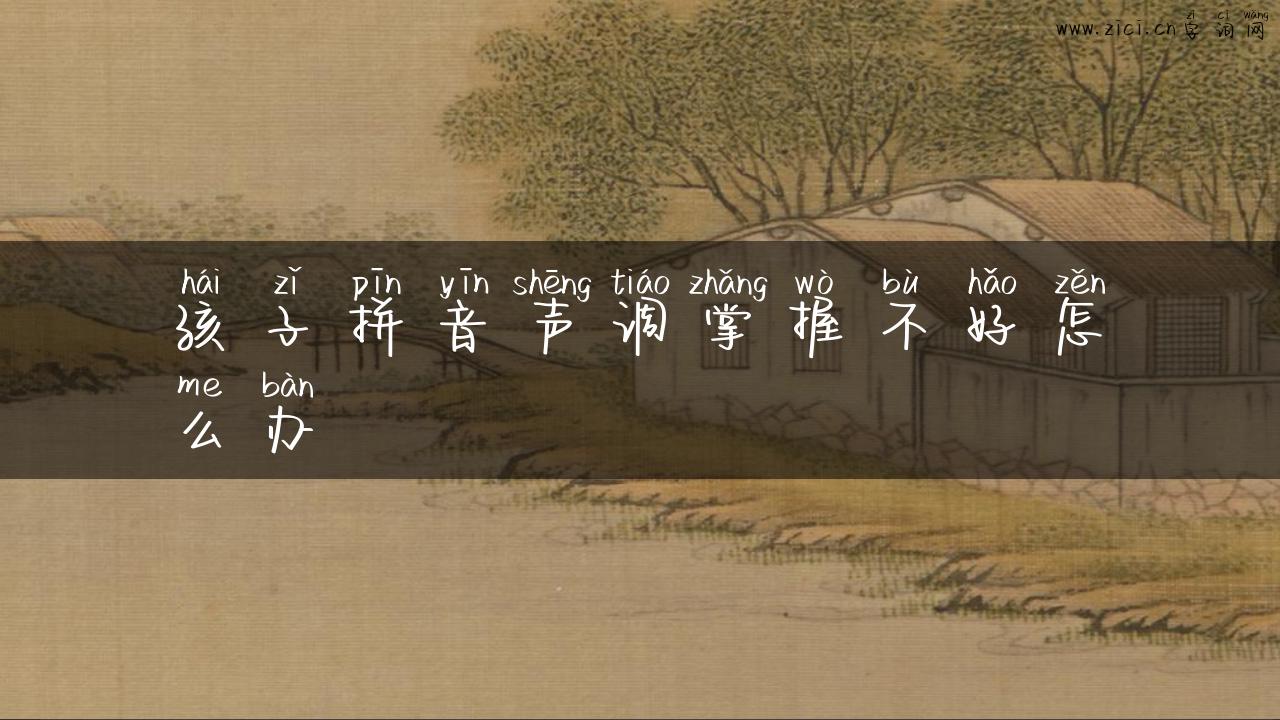 zì cí wǎng
www.zici.cn字词网
hái zǐ pīn yīn shēng tiáo zhǎng wò bù hǎo zěn
孩子拼音声调掌握不好怎
me bàn
么办